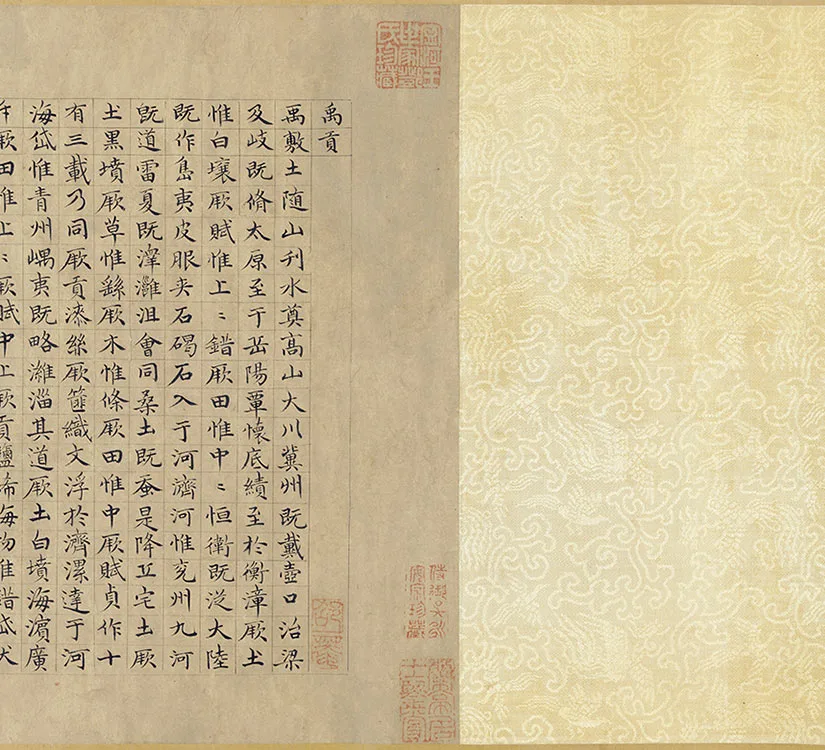 禹貢
禹敷土随山刋水奠髙山大川冀州既戴壺口治梁
及岐既脩太原至于岳陽覃懷底績至於衡漳厥土
惟白壤厥賦惟上〻錯厥田惟中〻恒衛既従大陸
既作島夷皮服夾石碣石入于河濟河惟兖州九河
既道雷夏既澤灉沮會同桑土既蚕是降丘宅土厥
土黒墳厥草惟繇厥木惟條厥田惟中厥賦貞作十
有三載乃同厥貢漆絲厥篚織文浮於濟漯達于河
海岱惟青州嵎夷既略濰淄其道厥土白墳海濱廣
斥厥田惟上〻厥賦中上厥貢鹽絺海物惟錯岱